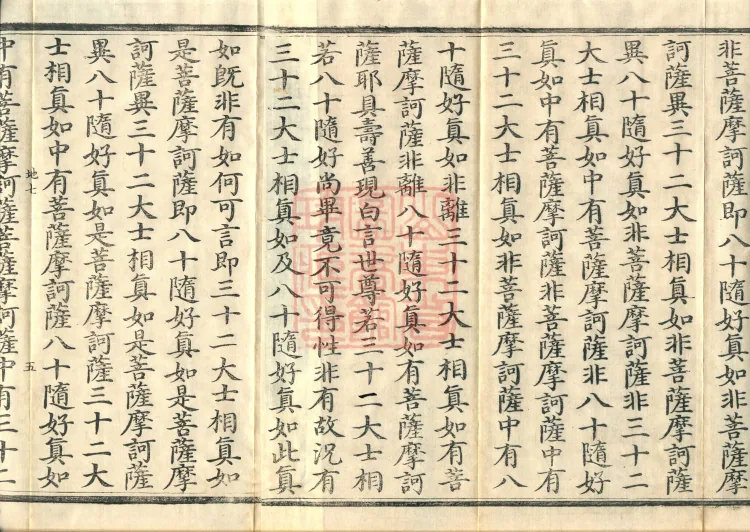 非菩薩摩訶薩即八十隨好眞如非菩薩摩
訶薩異三十二大士相眞如非菩薩摩訶薩
異八十隨好眞如非菩薩摩訶薩非三十二
大士相眞如中有菩薩摩訶薩非八十隨好
眞如中有菩薩摩訶薩非菩薩摩訶薩中有
三十二大士相眞如非菩薩摩訶薩中有八
十隨好眞如非離三十二大士相眞如有菩
薩摩訶薩非離八十隨好眞如有菩薩摩訶
薩耶具壽善現白言世尊若三十二大士相
若八十隨好尚畢竟不可得性非有故況有
三十二大士相眞如及八十隨好眞如此眞
如旣非有如何可言即三十二大士相眞如
是菩薩摩訶薩即八十隨好眞如是菩薩摩
訶薩異三十二大士相眞如是菩薩摩訶薩
異八十隨好眞如是菩薩摩訶薩三十二大
士相眞如中有菩薩摩訶薩八十隨好眞如
地七 五
中有菩薩摩訶薩菩薩摩訶薩中有三十二